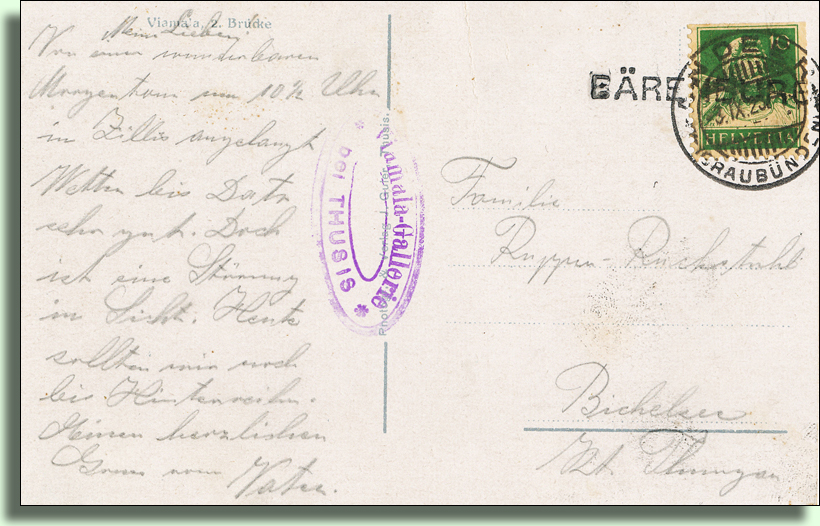 Viamala, 2. Brücke
Meine Lieben!
Von einer wunderbaren
Morgentour um 10½ Uhr
in Zillis angelangt
Wetter bis Dato
sehr gut. Doch
ist eine Störung
in Sicht. Heute
sollten wir noch
bis Hinterrhein.
Meinen herzlichen
Gruss vom
Vater.
Viamala-Gallerie
* bei THUSIS *
Photo & Verlag J. Guler, Thusis.
BÄRENBURG
GRAUBÜND
HELVETIA
Familie
Rupper-Ruckstuhl
Bichelsee
Kt. Thurgau